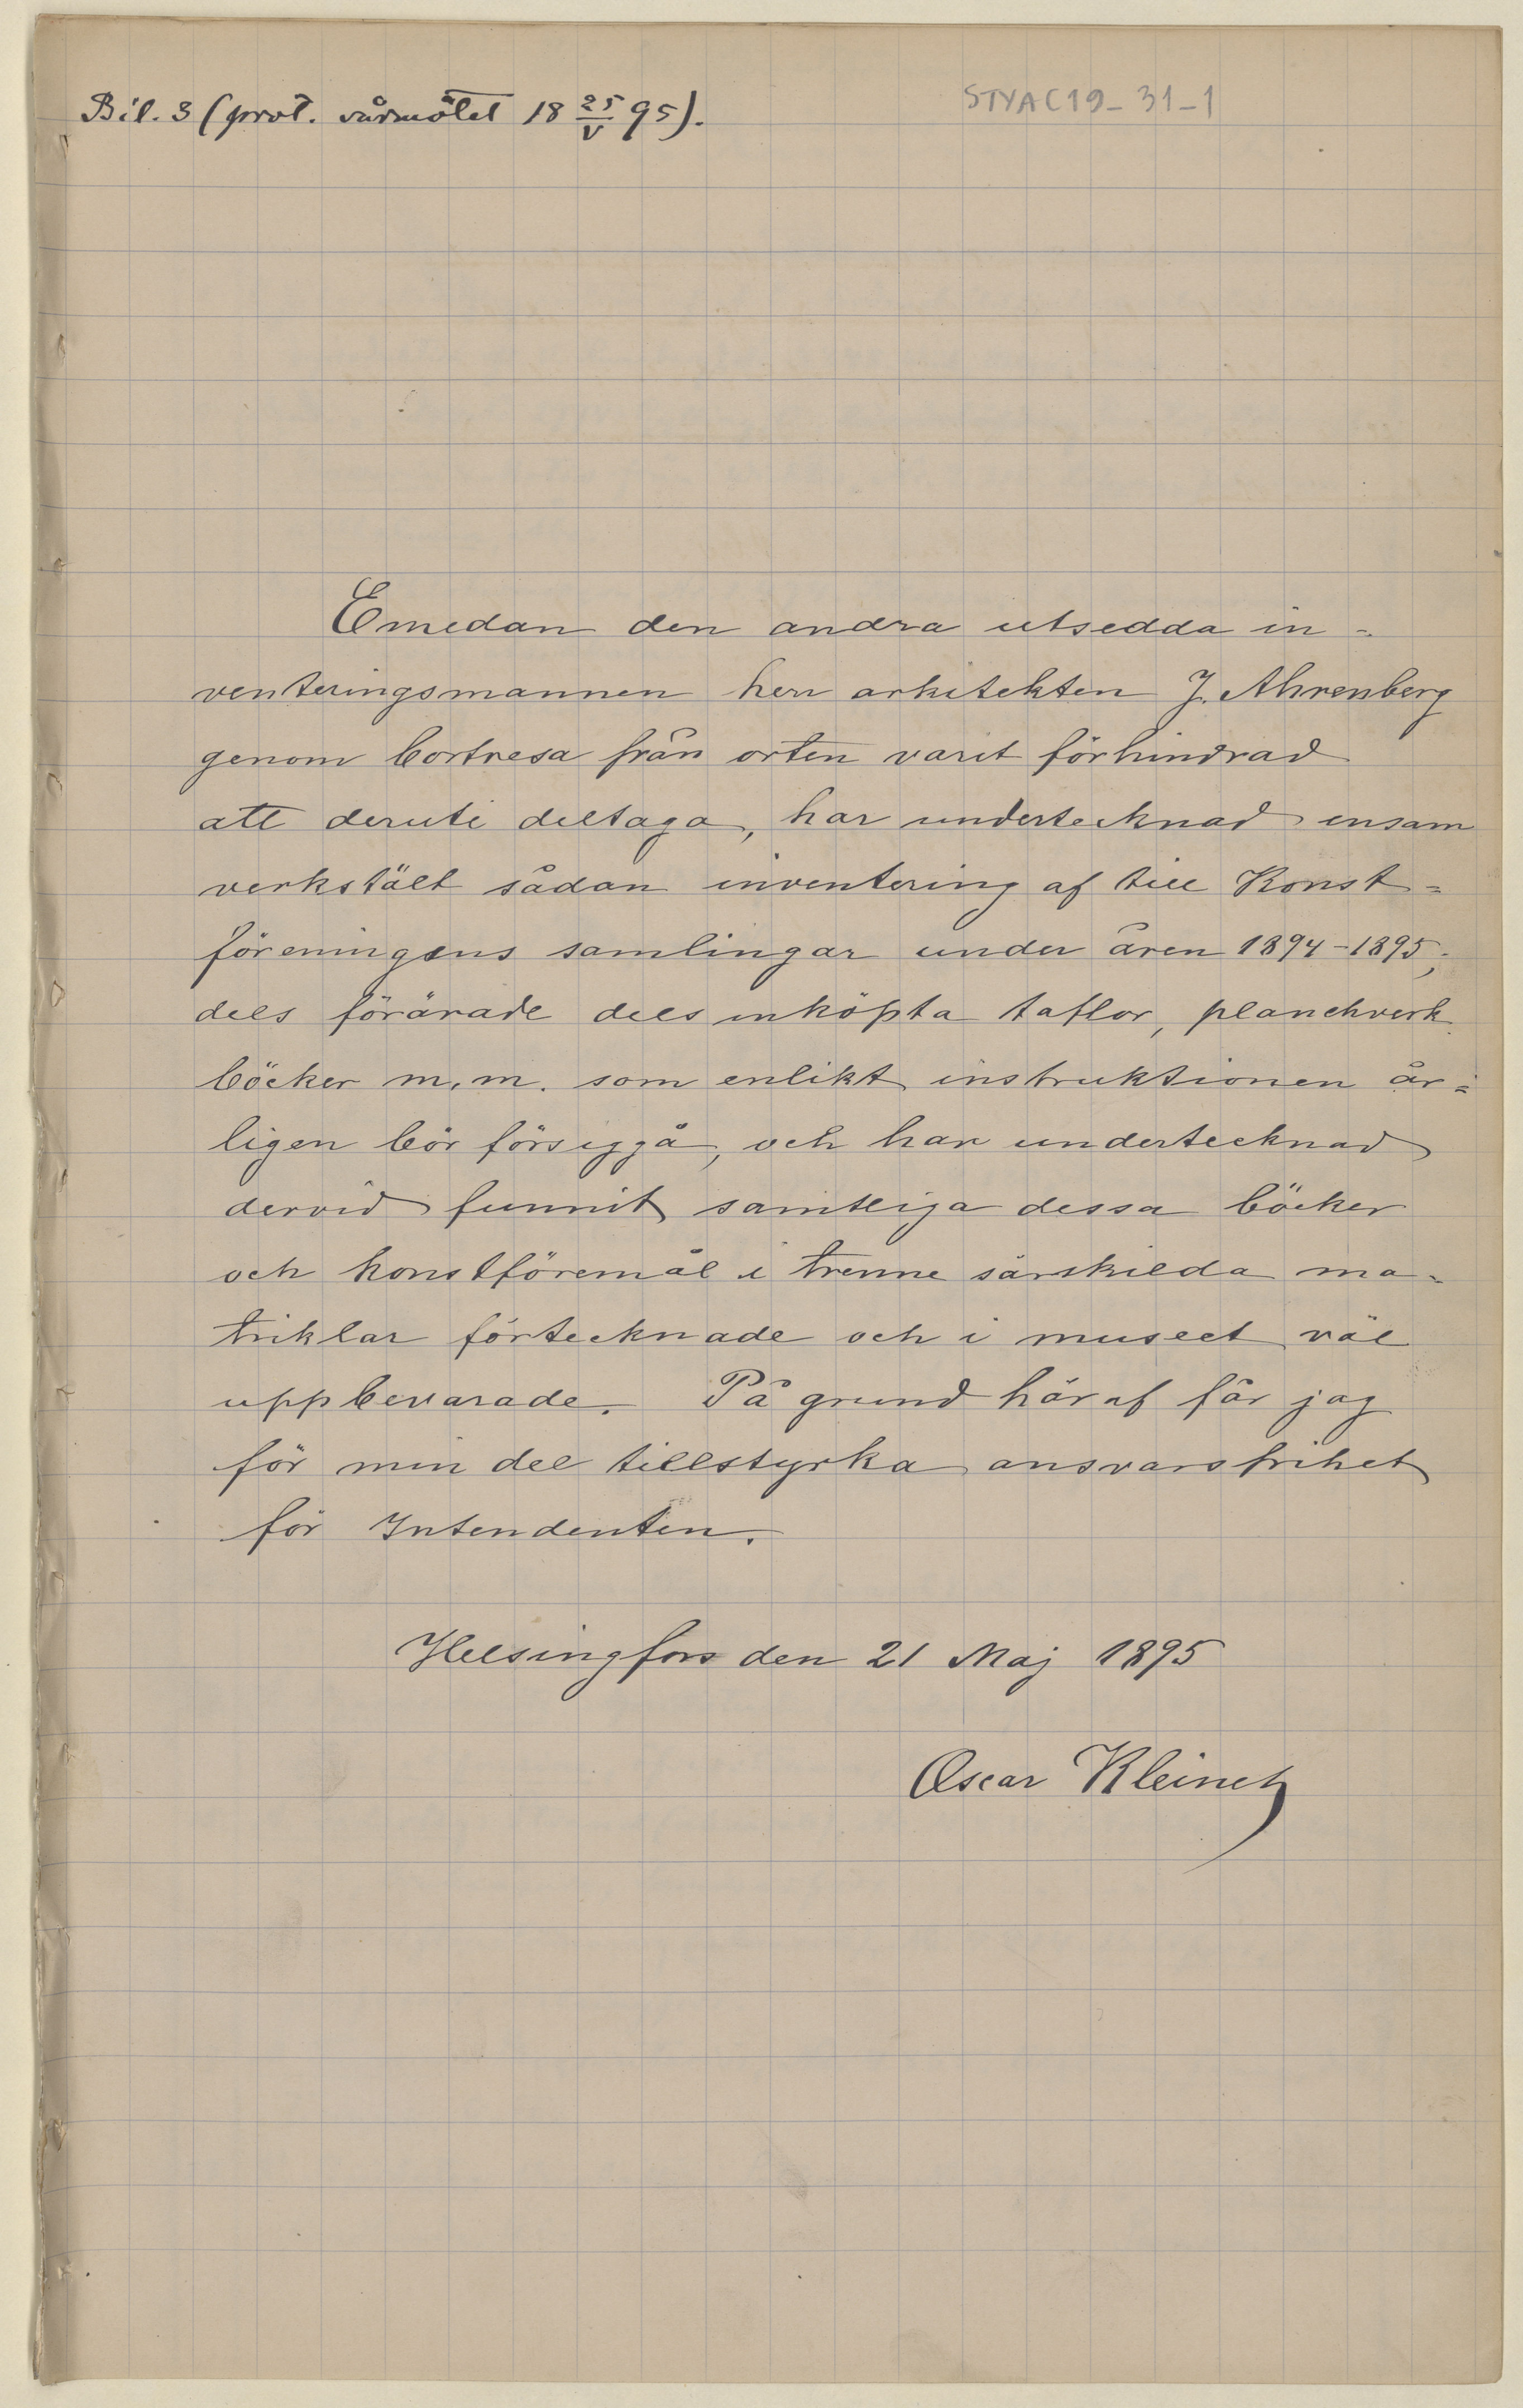 Bil. 3 (prot. vårmötet 18 25/V 95).
STYA C19_31_1
Emedan den andra utsedda in-
venteringsmannen herr arkitekten J. Ahrenberg
genom bortresa från orten varit förhindrad
att deruti deltaga, har undertecknad ensam
verkstält sådan inventering af till Konst=
föreningens samlingar under åren 1894-1895,
dels förärade dels inköpta taflor, planchverk
böcker m. m. som enlikt instruktionen år=
ligen bör försiggå, och har undertecknad
dervid funnit samtliga dessa böcker
och konstföremål i trenne särskilda ma-
triklar förtecknade och i museet väl
uppbevarade. På grund häraf får jag
för min del tillstyrka ansvarsfrihet
för Intendenten.
Helsingfors den 21 Maj 1895
Oscar Kleineh